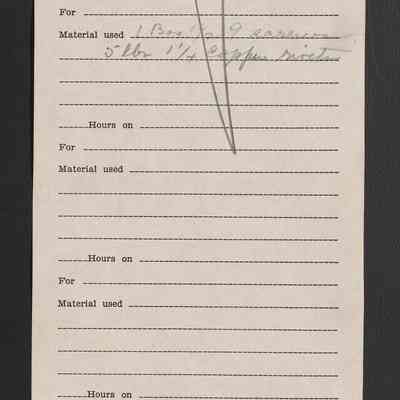 For
Material used 1 Box 9 screws
5 lbs 1 1/4 Copper rivets
Hours on
For
Material used
Hours on
For
Material used
Hours on